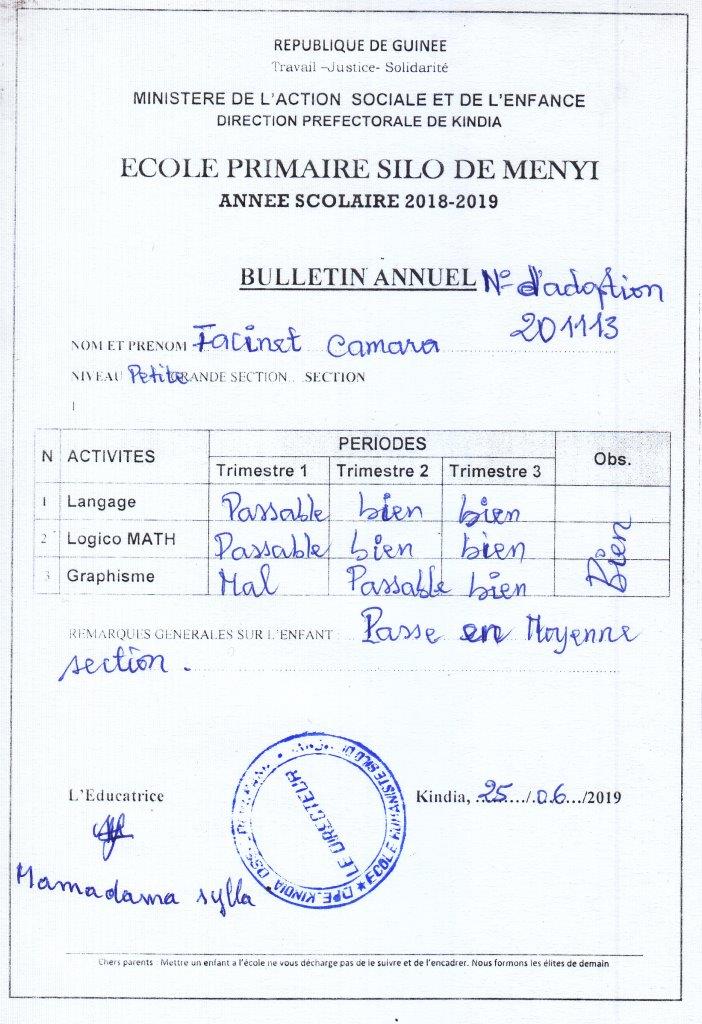 REPUBLIQUE DE GUINEE
Travail –Justice- Solidarité
MINISTERE DE L'ACTION SOCIALE ET DE L'ENFANCE
DIRECTION PREFECTORALE DE KINDIA
ECOLE PRIMAIRE SILO DE MENYI
ANNEE SCOLAIRE 2018-2019
BULLETIN ANNUEL N° d'adoption
201113
NOM ET PRENOM Facinet Camara
NIVEAU Petite GRANDE SECTION... SECTION
N ACTIVITES PERIODES Obs.
Trimestre 1 Trimestre 2 Trimestre 3
1 Langage Passable bien bien
2 Logico MATH Passable bien bien
3 Graphisme Mal Passable bien
Bien
REMARQUES GENERALES SUR L'ENFANT : Passe en Moyenne
section.
L'Educatrice
Kindia, 25.../.06.../2019
LE DIRECTEUR
Mamadama Sylla
Chers parents : Mettre un enfant a l'école ne vous décharge pas de le suivre et de l'encadrer. Nous formons les élites de demain